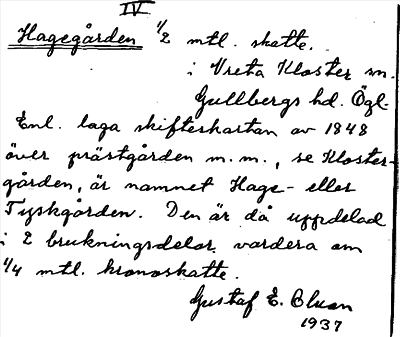 IV
Hagegården 1/2 mtl. skatte.
i Vreta Kloster sn.
Gullbergs hd. Ögl.
Enl. laga skifteskartan av 1848
över prästgården m.m., se Kloster-
gården, är namnet Hage- eller
Tyskgården. Den är då uppdelad
i 2 brukningsdelar vardera om
1/4 mtl. kronoskatte.
Gustaf E. Olson
1937